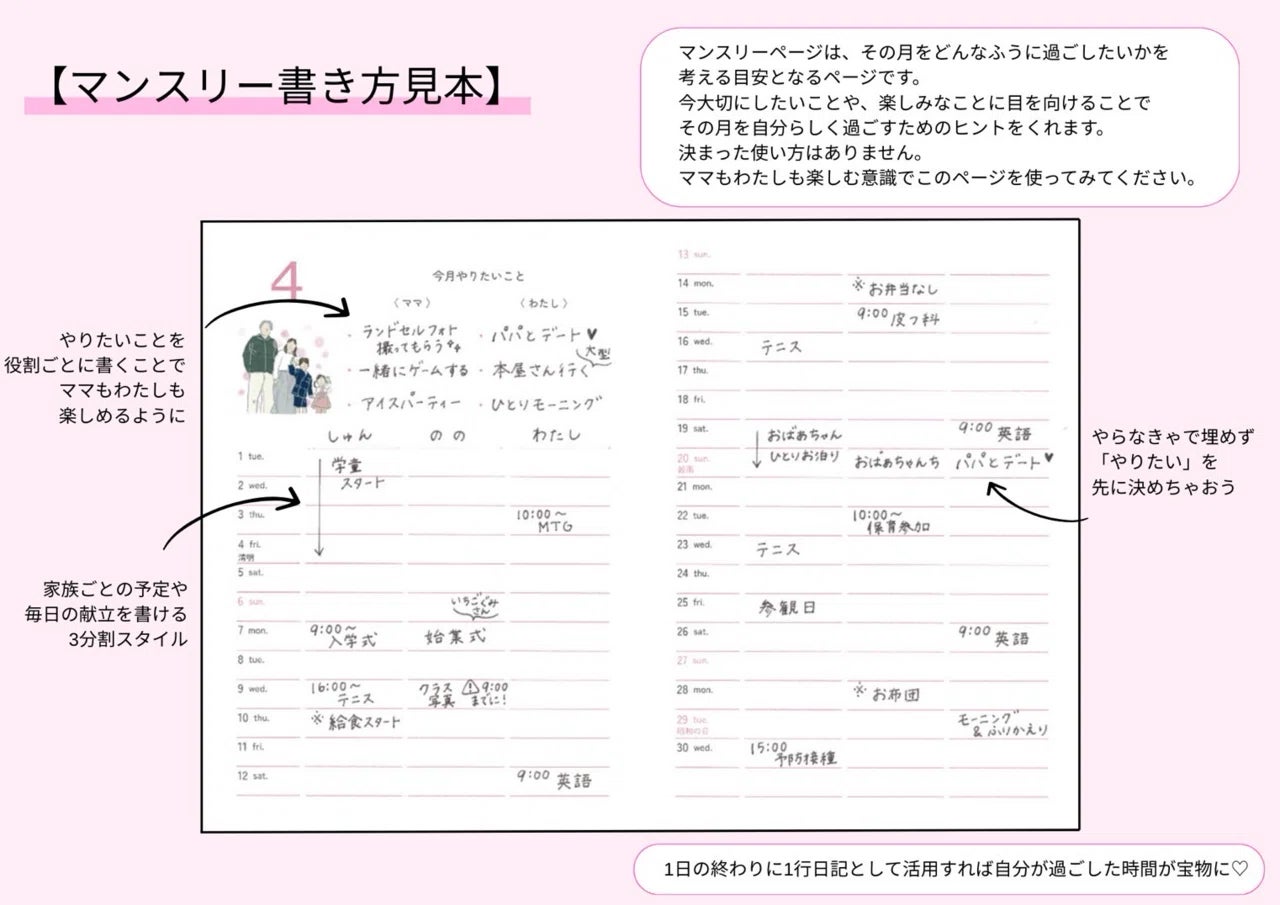 【マンスリー書き方見本】
マンスリーページは、その月をどんなふうに過ごしたいかを
考える目安となるページです。
今大切にしたいことや、楽しみなことに目を向けることで
その月を自分らしく過ごすためのヒントをくれます。
決まった使い方はありません。
ママもわたしも楽しむ意識でこのページを使ってみてください。
やりたいことを
役割ごとに書くことで
ママもわたしも
楽しめるように
家族ごとの予定や
毎日の献立を書ける
3分割スタイル
4
今月やりたいこと
〈ママ〉 〈わたし〉
・ランドセルフォト ・パパとデート♥
撮ってもらう 大型
・一緒にゲームする ・本屋さん行く
・アイスパーティー ・ひとりモーニング
しゅん のの わたし
1 tue. 学童
スタート
2 wed.
3 thu. 10:00〜
MTG
4 fri.
清明
5 sat.
6 sun. いちごぐみ
さん
7 mon. 9:00〜 入学式 始業式
8 tue.
9 wed. 16:00〜 テニス クラス写真 ⚠9:00までに!
10 thu. ※給食スタート
11 fri.
12 sat. 9:00 英語
13 sun.
14 mon. ※お弁当なし
15 tue. 9:00 皮フ科
16 wed. テニス
17 thu.
18 fri.
19 sat. おばあちゃん 9:00 英語
ひとりお泊り
20 sun. おばあちゃんち パパとデート♥
穀雨
21 mon.
22 tue. 10:00〜
保育参加
23 wed. テニス
24 thu.
25 fri. 参観日
26 sat. 9:00 英語
27 sun.
28 mon. ※お布団
29 tue. モーニング
昭和の日 &ふりかえり
30 wed. 15:00
予防接種
やらなきゃで埋めず
「やりたい」を
先に決めちゃおう
1日の終わりに1行日記として活用すれば自分が過ごした時間が宝物に♡